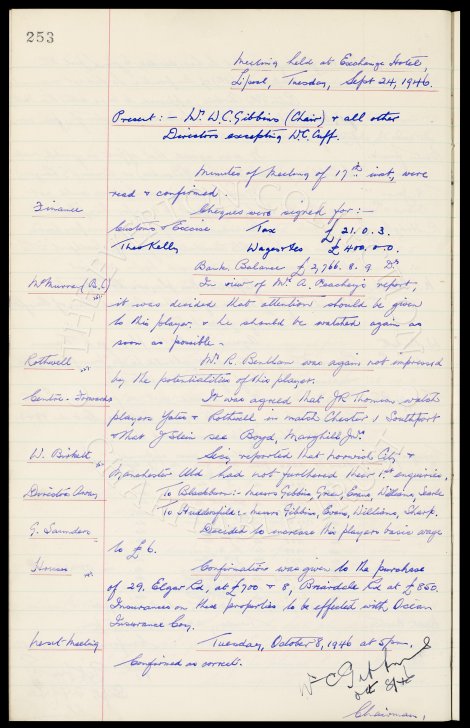 253
Meeting held at Exchange Hotel,
L'pool, Tuesday, Sept 24, 1946.
Present :- Mr. W.C. Gibbins (Chair) & all other
Directors excepting W.C. Cuff.
Minutes of Meeting of 17th inst, were
read & confirmed.
Finance
Cheques were signed for :-
Customs & Excise Tax £ 21. 0. 3.
Theo Kelly Wages etc £ 400. 0. 0.
Bank Balance £ 2,766. 8. 9 Dr
McMurray
In view of Mr. A. report,
it was decided that attention should be given
to this player, & he should be watched again as
soon as possible.
Rothwell
Mr. R. Bentham was again not impressed
by the potentialities of this player.
Centre-Forwards
It was agreed that J.R. Thomson watch
players Yates & Rothwell in match Chester v Southport
& that J. Stein see Boyd, Maryhill Jnr.
W. Birkett
Sec. reported that Norwich City &
Manchester Utd had not furthered their 1st enquiries.
Directors Away
To Blackburn :- Messrs Gibbins, Green, Evans, Williams, Searle
To Huddersfield :- Messrs Gibbins, Evans, Williams, Sharp.
G. Saunders
Decided to increase this players basic wage
to £6.
Houses
Confirmation was given to the purchase
of 29. Elgar Rd, at £700 & 8, Briardale Rd at £850.
Insurances on these properties to be effected with Ocean
Insurance Coy.
Next Meeting
Tuesday, October 8, 1946 at 5pm.
Confirmed as correct.
W C Gibbins
Oct 8/46
Chairman.